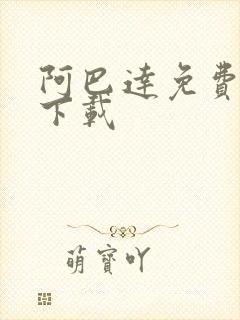 阿巴達免費
下載
萌寶吖